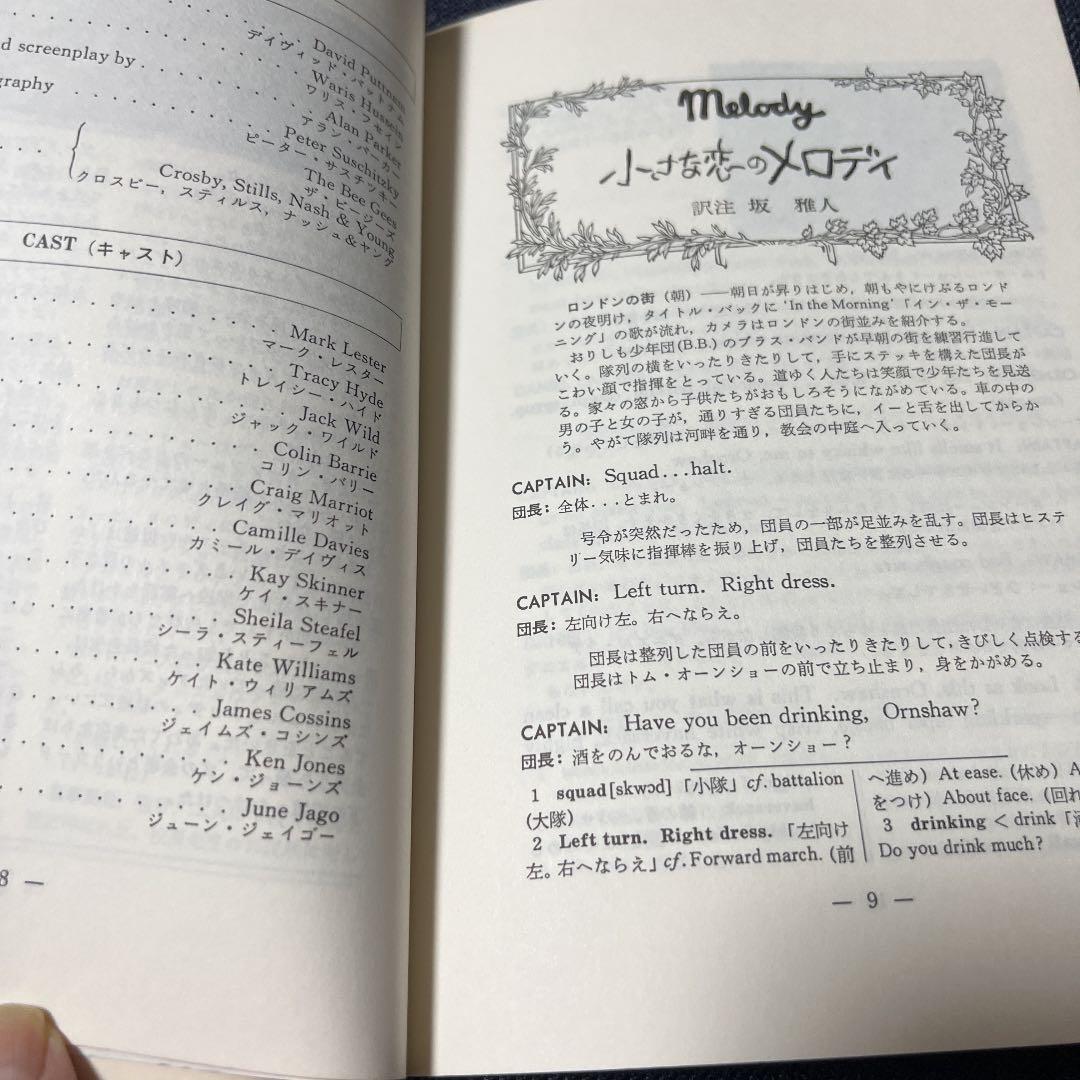 David Puttnam
デイヴィッド・パットナム
Waris Hussein
ワリス・フセイン
d screenplay by
Alan Parker
アラン・パーカー
graphy
Peter Suschitzky
ピーター・サスチッキー
The Bee Gees
ザ・ビージーズ
Crosby, Stills, Nash & Young
クロスビー，スティルス，ナッシュ＆ヤング
CAST（キャスト）
Mark Lester
マーク・レスター
Tracy Hyde
トレイシー・ハイド
Jack Wild
ジャック・ワイルド
Colin Barrie
コリン・バリー
Craig Marriot
クレイグ・マリオット
Camille Davies
カミール・デイヴィス
Kay Skinner
ケイ・スキナー
Sheila Steafel
シーラ・スティーフェル
Kate Williams
ケイト・ウィリアムズ
James Cossins
ジェイムズ・コシンズ
Ken Jones
ケン・ジョーンズ
June Jago
ジューン・ジェイゴー
8 —
Melody
小さな恋のメロディ
訳注 坂 雅人
ロンドンの街（朝）——朝日が昇りはじめ，朝もやにけぶるロンド
ンの夜明け，タイトル・バックに‘In the Morning’「イン・ザ・モー
ニング」の歌が流れ，カメラはロンドンの街並みを紹介する。
おりしも少年団(B.B.)のブラス・バンドが早朝の街を練習行進して
いく。隊列の横をいったりきたりして，手にステッキを構えた団長が
こわい顔で指揮をとっている。道ゆく人たちは笑顔で少年たちを見送
る。家々の窓から子供たちがおもしろそうにながめている。車の中の
男の子と女の子が，通りすぎる団員たちに，イーと舌を出してからか
う。やがて隊列は河畔を通り，教会の中庭へ入っていく。
CAPTAIN: Squad...halt.
団長：全体...とまれ。
号令が突然だったため，団員の一部が足並みを乱す。団長はヒステ
リー気味に指揮棒を振り上げ，団員たちを整列させる。
CAPTAIN: Left turn. Right dress.
団長：左向け左。右へならえ。
団長は整列した団員の前をいったりきたりして，きびしく点検する
団長はトム・オーンショーの前で立ち止まり，身をかがめる。
CAPTAIN: Have you been drinking, Ornshaw?
団長：酒をのんでおるな，オーンショー？
1 squad[skwɔd]「小隊」cf. battalion
(大隊)
2 Left turn. Right dress.「左向け
左。右へならえ」cf. Forward march.（前
へ進め）At ease.（休め）A
をつけ）About face.（回れ
3 drinking < drink「酒
Do you drink much?
— 9 —